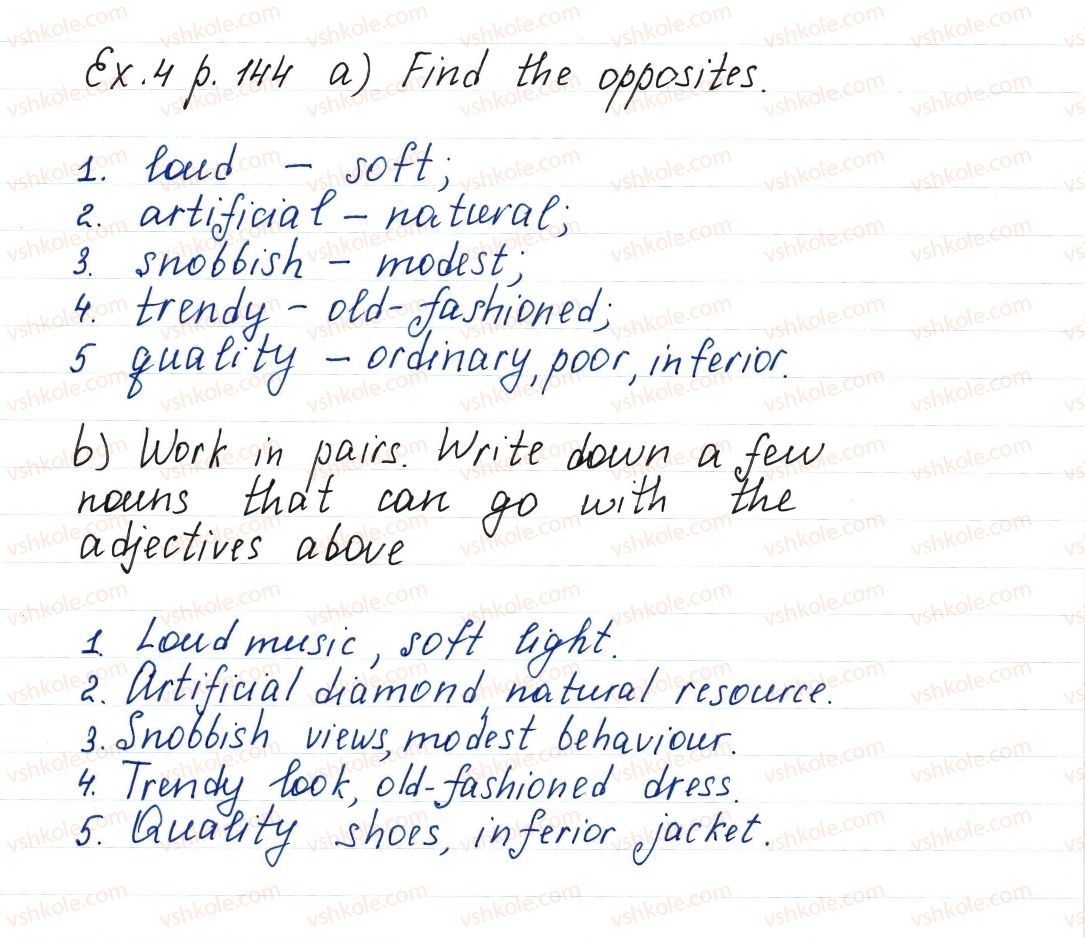 Ex. 4 p. 144 a) Find the opposites.
1. loud – soft;
2. artificial – natural;
3. snobbish – modest;
4. trendy – old-fashioned;
5 quality – ordinary, poor, inferior.
b) Work in pairs. Write down a few
nouns that can go with the
adjectives above
1. Loud music, soft light.
2. Artificial diamond, natural resource.
3. Snobbish views, modest behaviour.
4. Trendy look, old-fashioned dress.
5. Quality shoes, inferior jacket.
vshkole.com